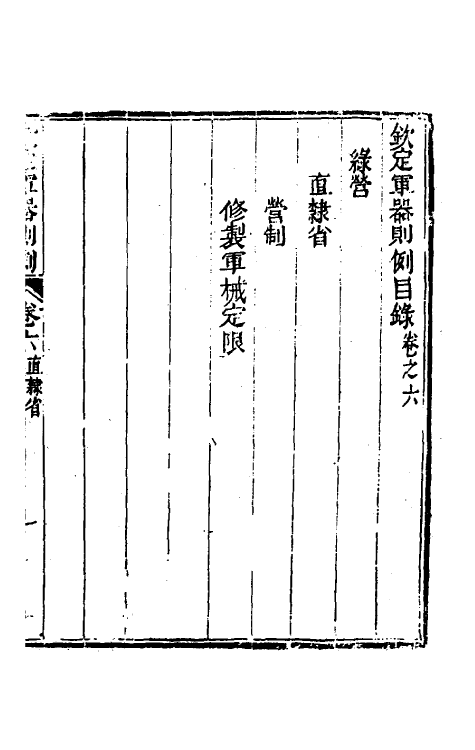 欽定軍器則例目錄卷之六
綠營
直隸省
營制
修製軍械定限
軍器則例
卷六直隸省